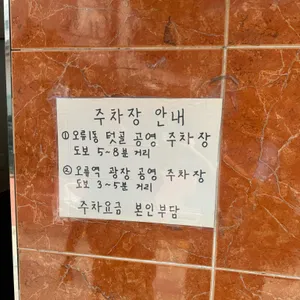 주차장 안내
① 오류1동 텃골 공영 주차장
도보 5~8분 거리
② 오류역 광장 공영 주차장
도보 3~5분 거리
주차요금 본인부담